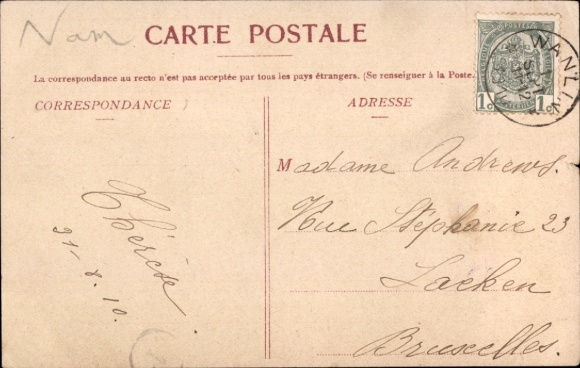 Nam
CARTE POSTALE
La correspondance au recto n'est pas acceptée par tous les pays étrangers. (Se renseigner à la Poste.)
CORRESPONDANCE
ADRESSE
Thérèse.
21-8.10.
Madame Andrews.
Rue Stéphanie 23
Laeken
Bruxelles.
WANLIN
1c 1c